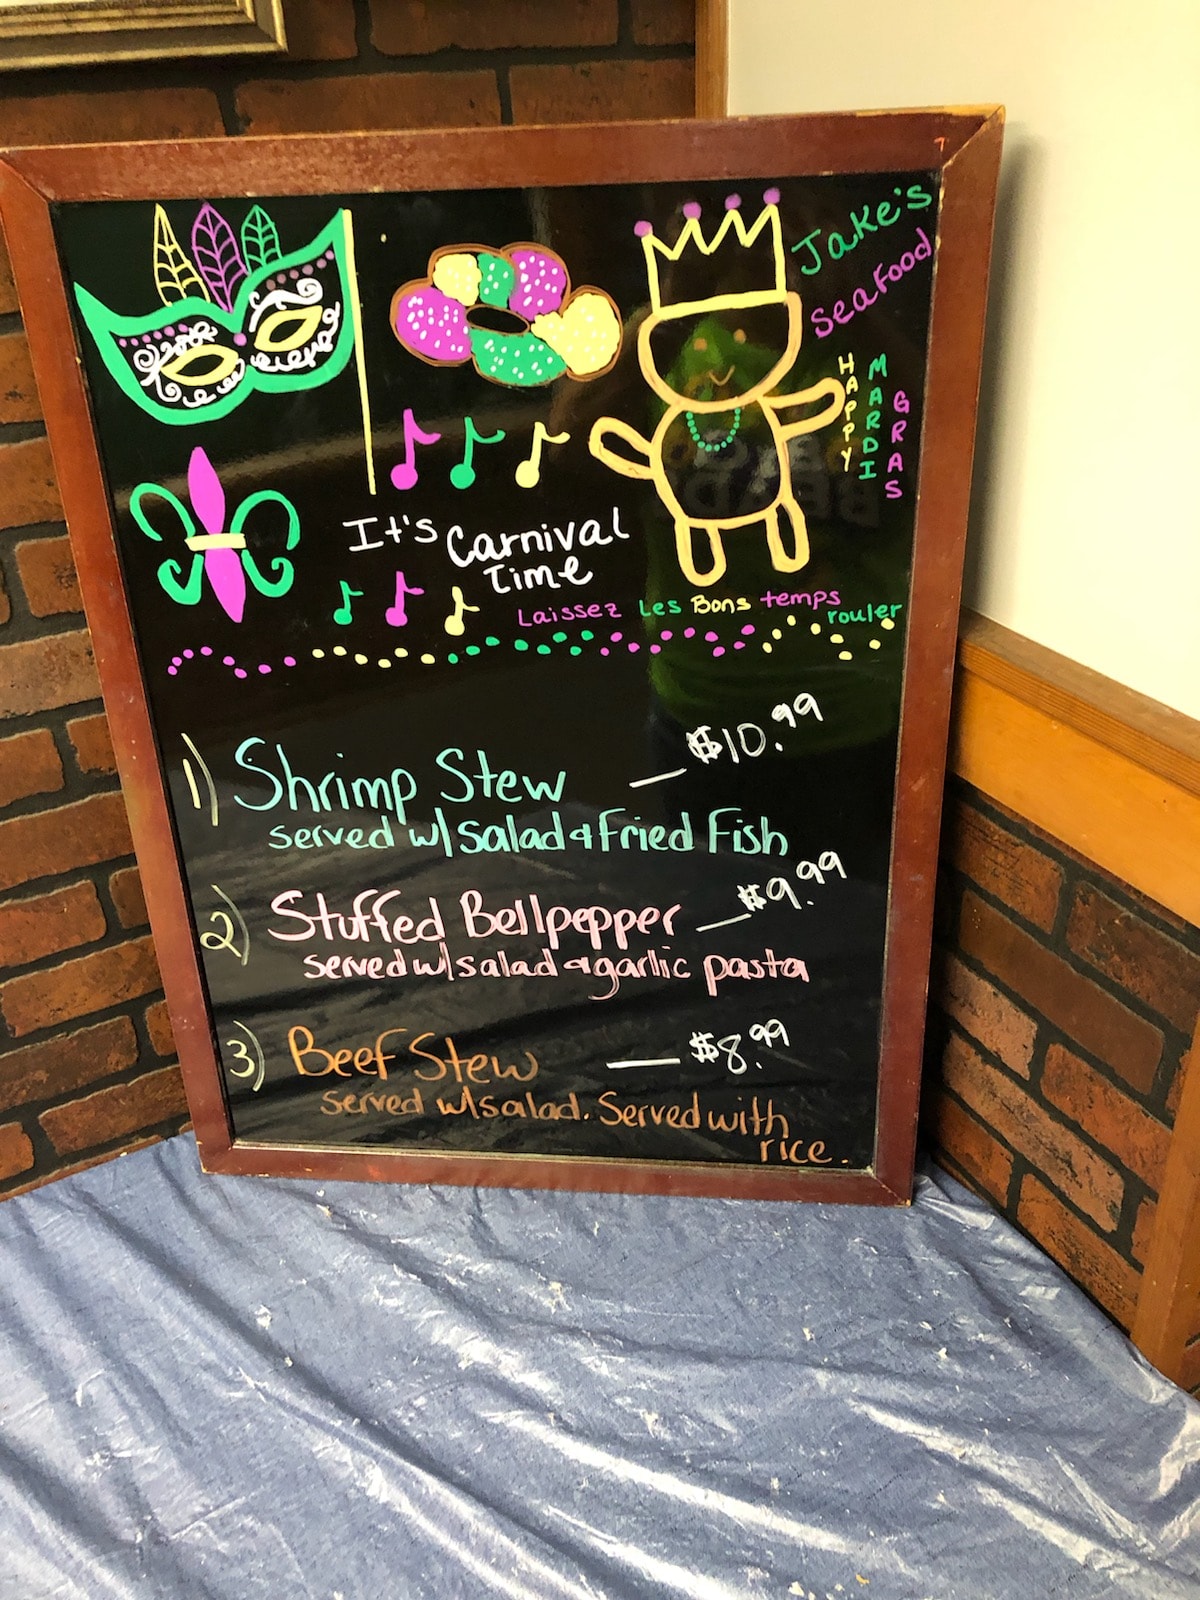 Jake's
Seafood
HAPPY
MARDI
GRAS
It's Carnival
Time
Laissez Les Bons temps
rouler
1) Shrimp Stew — $10.99
served w/ salad & Fried Fish
2) Stuffed Bellpepper — $9.99
served w/ salad & garlic pasta
3) Beef Stew — $8.99
served w/ salad. Served with
rice.